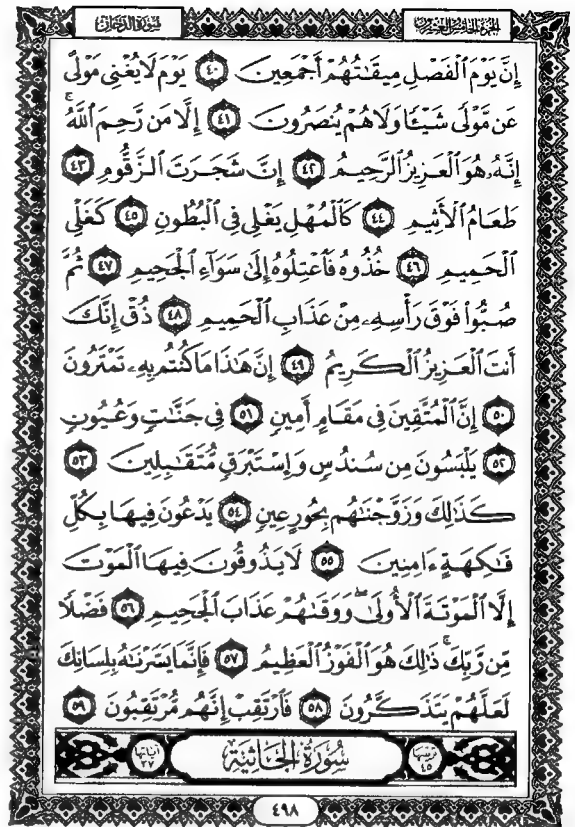 سُورَةُ الدُّخَانِ
الجزء الخامس والعشرون
إِنَّ يَوْمَ ٱلْفَصْلِ مِيقَٰتُهُمْ أَجْمَعِينَ ٤٠ يَوْمَ لَا يُغْنِى مَوْلًى
عَن مَّوْلًى شَيْـًٔا وَلَا هُمْ يُنصَرُونَ ٤١ إِلَّا مَن رَّحِمَ ٱللَّهُ ۚ
إِنَّهُۥ هُوَ ٱلْعَزِيزُ ٱلرَّحِيمُ ٤٢ إِنَّ شَجَرَتَ ٱلزَّقُّومِ ٤٣
طَعَامُ ٱلْأَثِيمِ ٤٤ كَٱلْمُهْلِ يَغْلِى فِى ٱلْبُطُونِ ٤٥ كَغَلْىِ
ٱلْحَمِيمِ ٤٦ خُذُوهُ فَٱعْتِلُوهُ إِلَىٰ سَوَآءِ ٱلْجَحِيمِ ٤٧ ثُمَّ
صُبُّوا۟ فَوْقَ رَأْسِهِۦ مِنْ عَذَابِ ٱلْحَمِيمِ ٤٨ ذُقْ إِنَّكَ
أَنتَ ٱلْعَزِيزُ ٱلْكَرِيمُ ٤٩ إِنَّ هَٰذَا مَا كُنتُم بِهِۦ تَمْتَرُونَ
٥٠ إِنَّ ٱلْمُتَّقِينَ فِى مَقَامٍ أَمِينٍ ٥١ فِى جَنَّٰتٍ وَعُيُونٍ
٥٢ يَلْبَسُونَ مِن سُندُسٍ وَإِسْتَبْرَقٍ مُّتَقَٰبِلِينَ ٥٣
كَذَٰلِكَ وَزَوَّجْنَٰهُم بِحُورٍ عِينٍ ٥٤ يَدْعُونَ فِيهَا بِكُلِّ
فَٰكِهَةٍ ءَامِنِينَ ٥٥ لَا يَذُوقُونَ فِيهَا ٱلْمَوْتَ
إِلَّا ٱلْمَوْتَةَ ٱلْأُولَىٰ ۖ وَوَقَىٰهُمْ عَذَابَ ٱلْجَحِيمِ ٥٦ فَضْلًا
مِّن رَّبِّكَ ۚ ذَٰلِكَ هُوَ ٱلْفَوْزُ ٱلْعَظِيمُ ٥٧ فَإِنَّمَا يَسَّرْنَٰهُ بِلِسَانِكَ
لَعَلَّهُمْ يَتَذَكَّرُونَ ٥٨ فَٱرْتَقِبْ إِنَّهُم مُّرْتَقِبُونَ ٥٩
ترتيبها ٤٥ سُورَةُ الجَاثِيَةِ آياتها ٣٧
٤٩٨